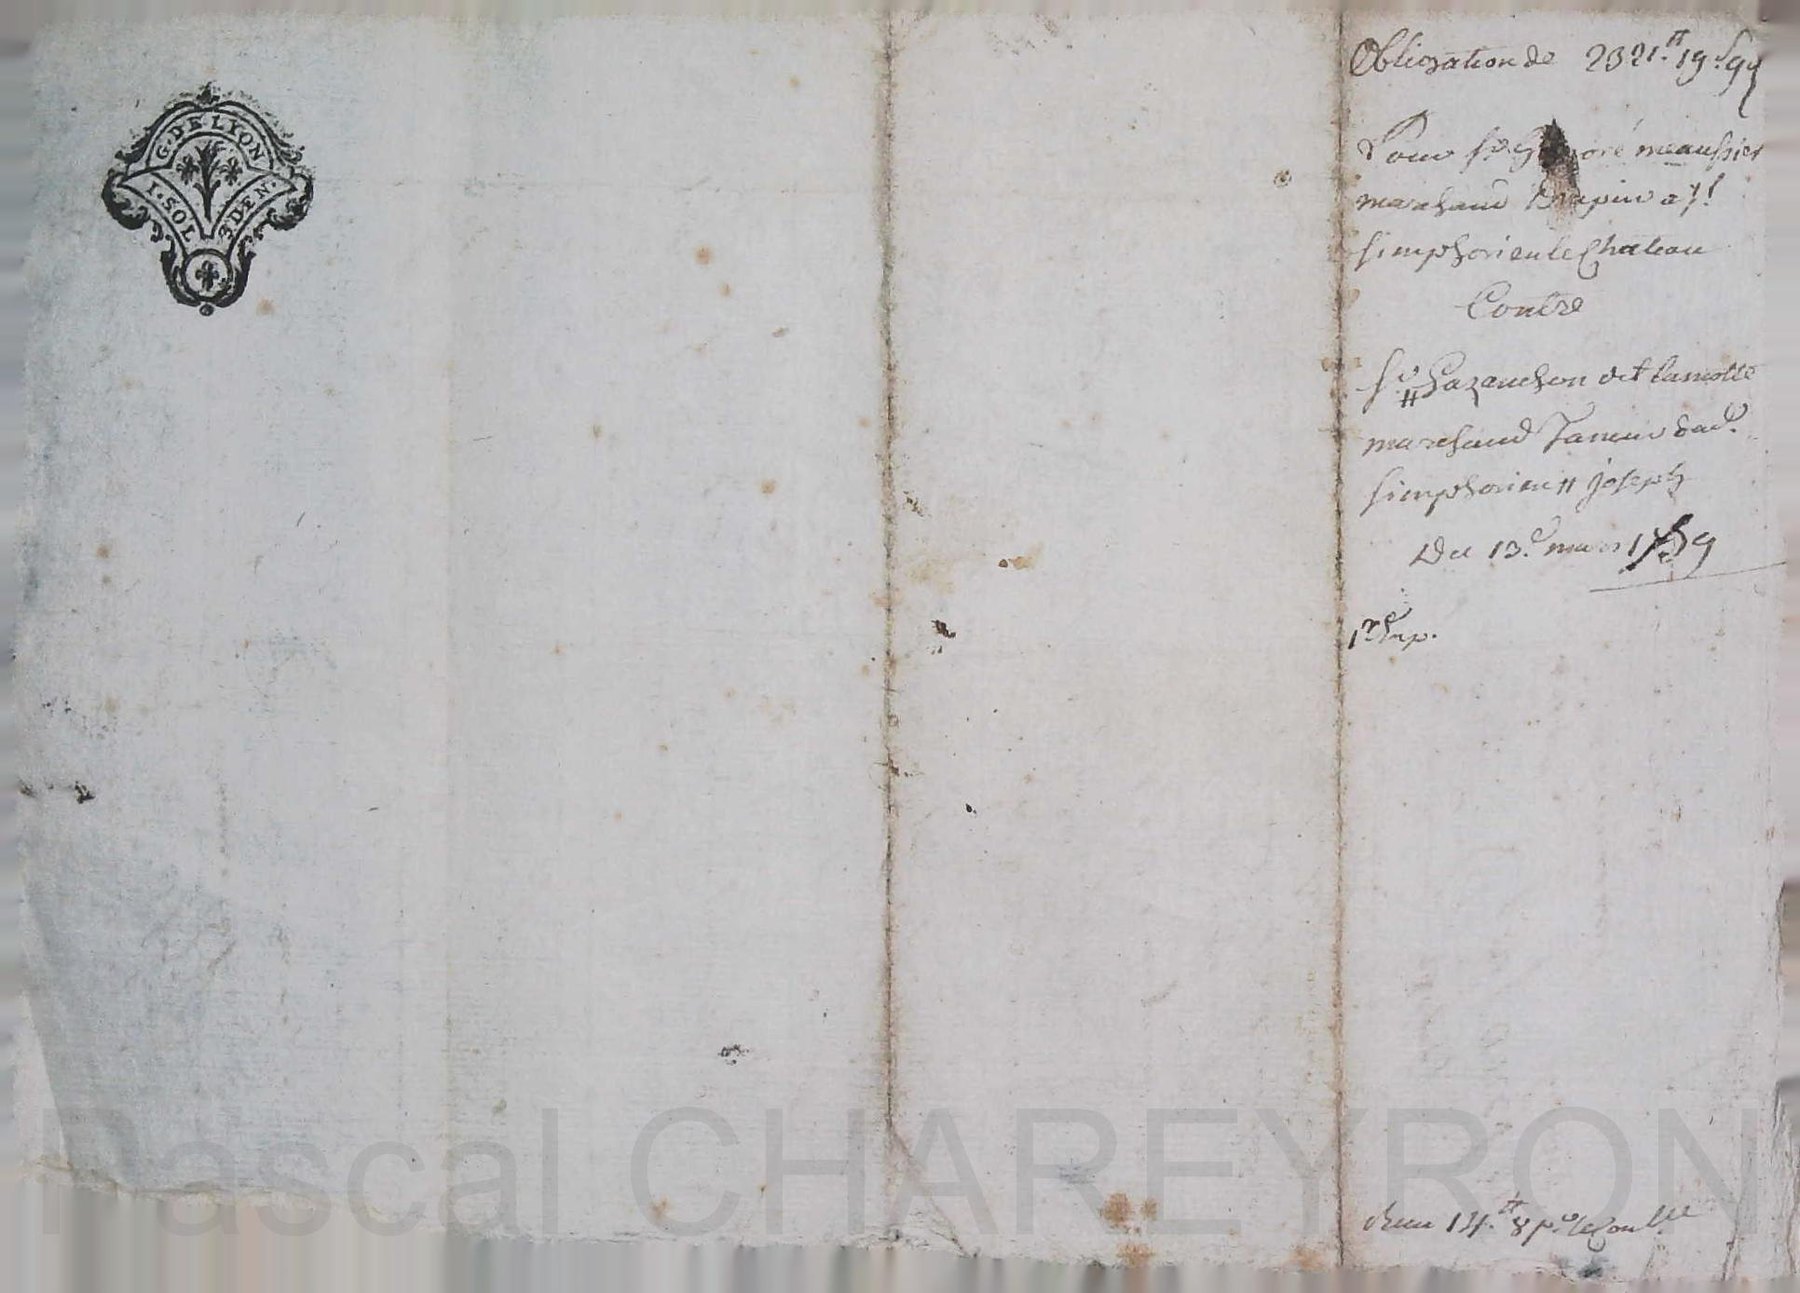 G. DE LYON
1. SOL 3 DEN.
Obligation de 2321.tt 19.s 9d
Pour Sr. oré meaussier
marchand Drapier a St.
Simphorien le Chateau
Contre
Sr. Gazanchon dit lamotte
marchand Taneur dud.
Simphorien // Joseph
Du 13.e mars 1759
1re Exp.
14.tt 8 s. le Con
Pascal CHAREYRON